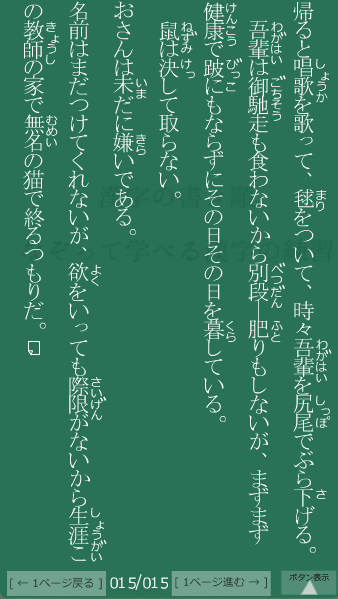 帰ると唱歌を歌って、毬をついて、時々吾輩を尻尾でぶら下げる。
吾輩は御馳走も食わないから別段―肥りもしないが、まずまず
健康で跛にもならずにその日その日を暮している。
鼠は決して取らない。
おさんは未だに嫌いである。
名前はまだつけてくれないが、欲をいっても際限がないから生涯こ
の教師の家で無名の猫で終るつもりだ。
[ ← 1ページ戻る ]
015/015
[ 1ページ進む → ]
ボタン表示